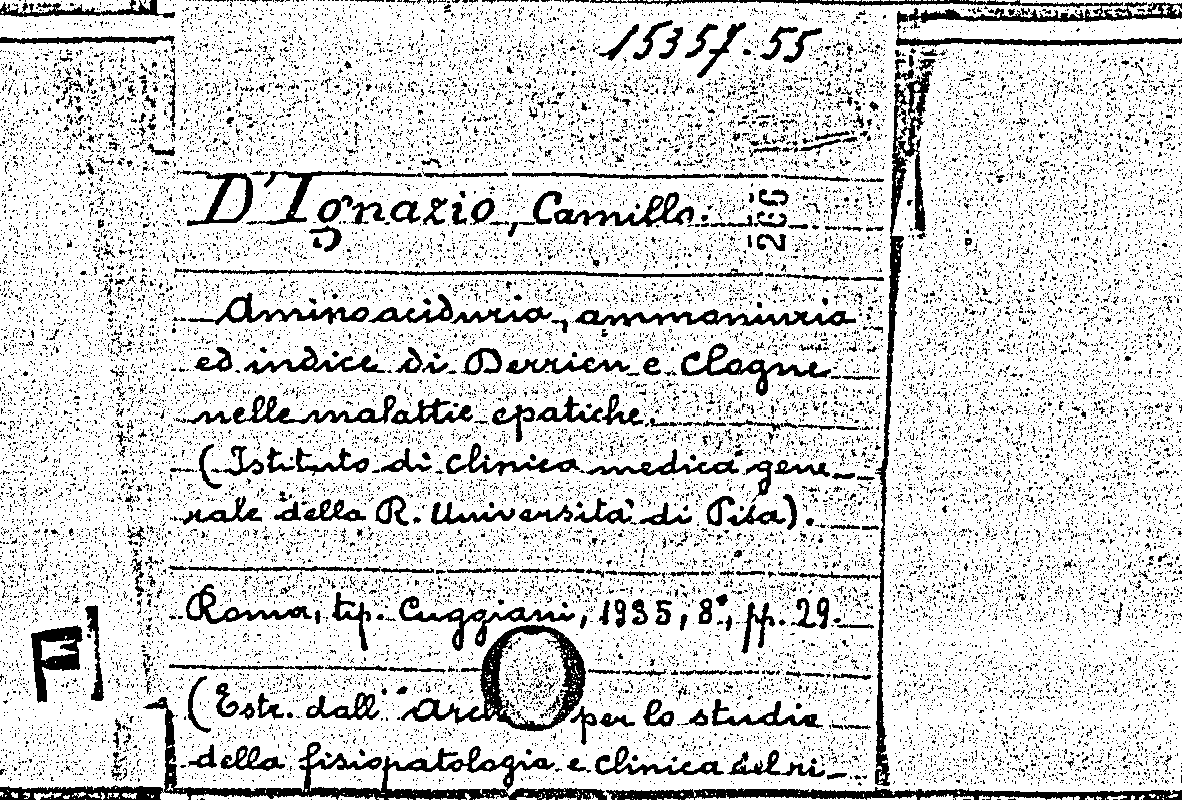 15357.55
D'Ignazio, Camillo.
Aminoaciduria, ammoniuria
ed indice di Derrien e Clogne
nelle malattie epatiche.
(Istituto di clinica medica gene
rale della R. Università di Pisa).
Roma, tip. Cuggiani, 1935, 8°, pp. 29.
(Estr. dall' "Arch per lo studio
della fisiopatologia e clinica del ri_